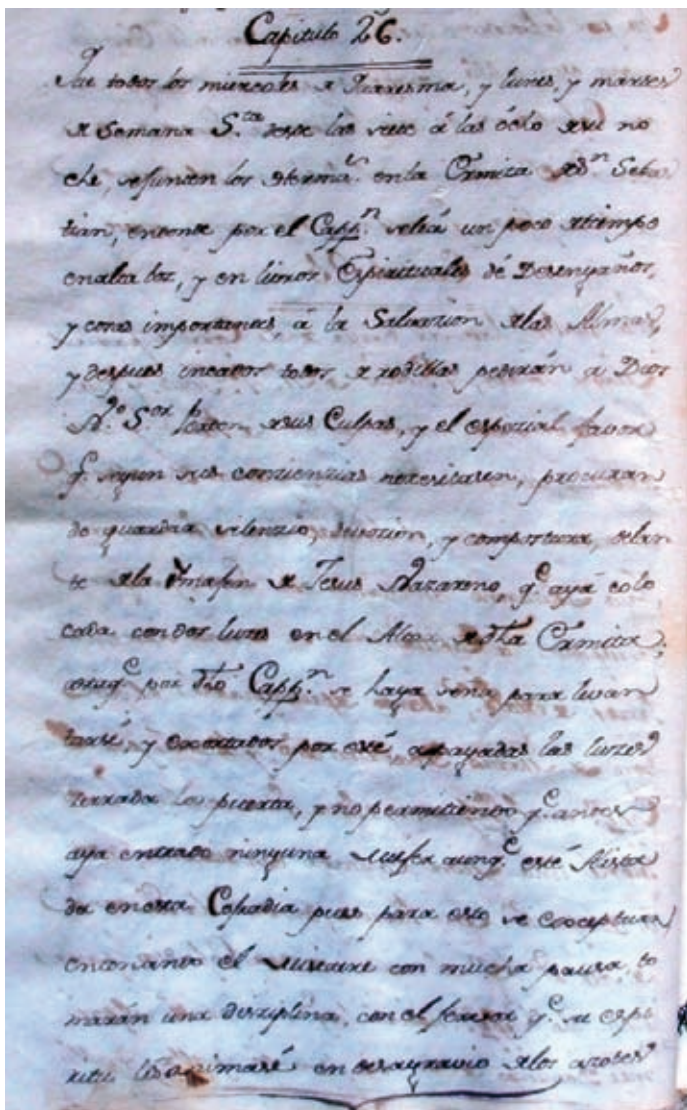 Capitulo 26.
Que todos los miercoles de Quaresma, y lunes, y martes
de Semana S.ta desde las siete á las ocho de su no
che, se junten los Herma.s en la Ermita de S.n Sebas
tian, en donde por el Capp.n se leá un poco de tiempo
en alta boz, y en libros Espirituales de Desengaños,
y cosas importantes, á la Salvazion de las Almas,
y despues incados todos de rodillas pedirán á Dios
N.º S.or Perdon de sus Culpas, y el espezial favor
q.e segun sus conzienzias nezesitasen, procuran
do guardar silenzio, devozion, y compostura, delan
te de la Imagen de Jesus Nazareno, q.e ayá colo
cada con dos luzes en el Altar de dha Ermita,
q.e por dho Capp.n se haga seña para levan
tarse, y exortados por esté apagadas las luzes
zerrada la puerta, y no permitiendo q.e antes
aya entrado ninguna Mujer aunq.e esté Alista
da en esta Cofradia pues para esto se conceptura
entonando el Miserere con mucha pausa, to
marán una disziplina, con el fervor q.e su espi
ritu les animasé en desagravio de los azotes